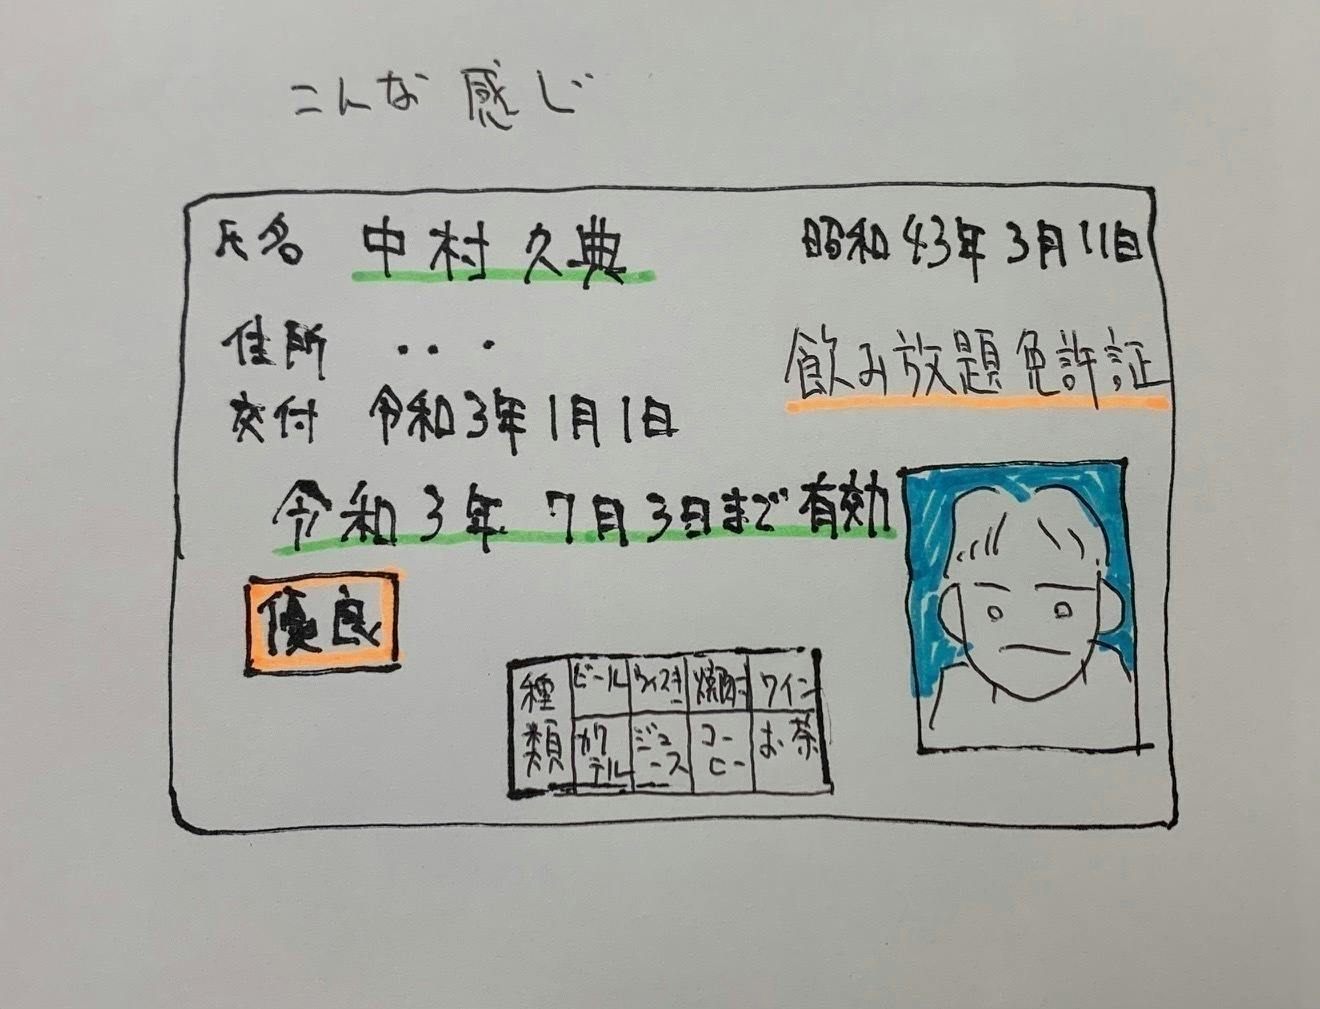 こんな感じ
氏名 中村久典 昭和43年3月11日
住所 ・・・
飲み放題免許証
交付 令和3年1月1日
令和3年 7月3日まで有効
優良
種類 ビール ウイスキー 焼酎 ワイン
カクテル ジュース コーヒー お茶